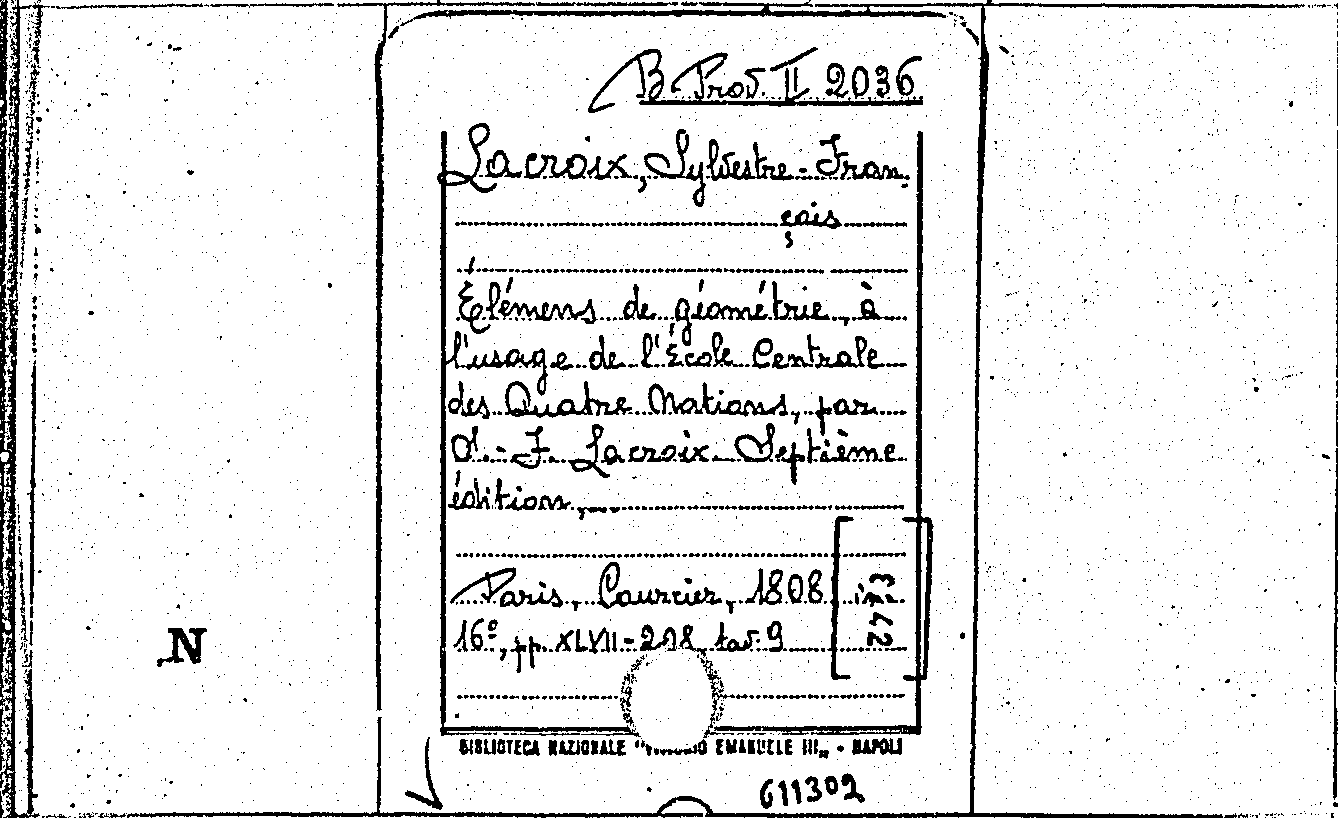 B. Prov. II 2036
Lacroix, Sylvestre-Fran-
çois
Élémens de géométrie, à
l'usage de l'École Centrale
des Quatre Nations, par
S.-F. Lacroix. Septième
édition,...
Paris, Courcier, 1808
16º, pp. XLVII-208 tav. 9
N
BIBLIOTECA NAZIONALE "VITTORIO EMANUELE III„ - NAPOLI
611302